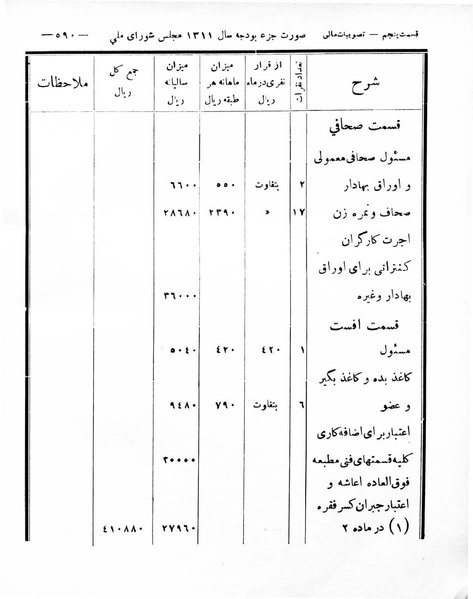 قسمت پنجم - تصویبات مالی صورت جزء بودجه سال ۱۳۱۱ مجلس شورای ملی - ۵۹۰ -
شرح تعداد نفرات از قرار نفری در ماه ریال میزان ماهانه هر طبقه ریال میزان سالیانه ریال جمع کل ریال ملاحظات
قسمت صحافی
مسئول صحافی معمولی
و اوراق بهادار ۲ بتفاوت ۵۵۰ ۶۶۰۰
صحاف و نمره زن ۱۷ » ۲۳۹۰ ۲۸۶۸۰
اجرت کارگران
کنتراتی برای اوراق
بهادار وغیره ۳۶۰۰۰
قسمت افست
مسئول ۱ ۴۲۰ ۴۲۰ ۵۰۴۰
کاغذ بده و کاغذ بگیر
و عضو ۶ بتفاوت ۷۹۰ ۹۴۸۰
اعتبار برای اضافه کاری
کلیه قسمتهای فنی مطبعه ۲۰۰۰۰
فوق العاده اعاشه و
اعتبار جبران کسر فقره
(۱) در ماده ۲ ۲۷۹۶۰ ۴۱۰۸۸۰